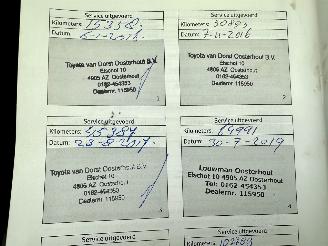 Service uitgevoerd
Kilometers: 15330
Datum: 6-1-2016
Toyota van Dorst Oosterhout B.V.
Elschot 10
4905 AZ Oosterhout
0162-454353
Dealernr. 115950
1
Service uitgevoerd
Kilometers: 30893
Datum: 7-11-2016
Toyota van Dorst Oosterhout B.V.
Elschot 10
4905 AZ Oosterhout
0162-454353
Dealernr. 115950
2
Service uitgevoerd
Kilometers: 45387
Datum: 23-8-2017
Toyota van Dorst Oosterhout B.V.
Elschot 10
4905 AZ Oosterhout
0162-454353
Dealernr. 115950
3
Service uitgevoerd
Kilometers:
Datum: 30-7-2019
Louwman Oosterhout
Elschot 10 4905 AZ Oosterhout
Tel: 0162 454353
Dealernr. 115950
4
Service uitgevoerd
Service uitgevoerd